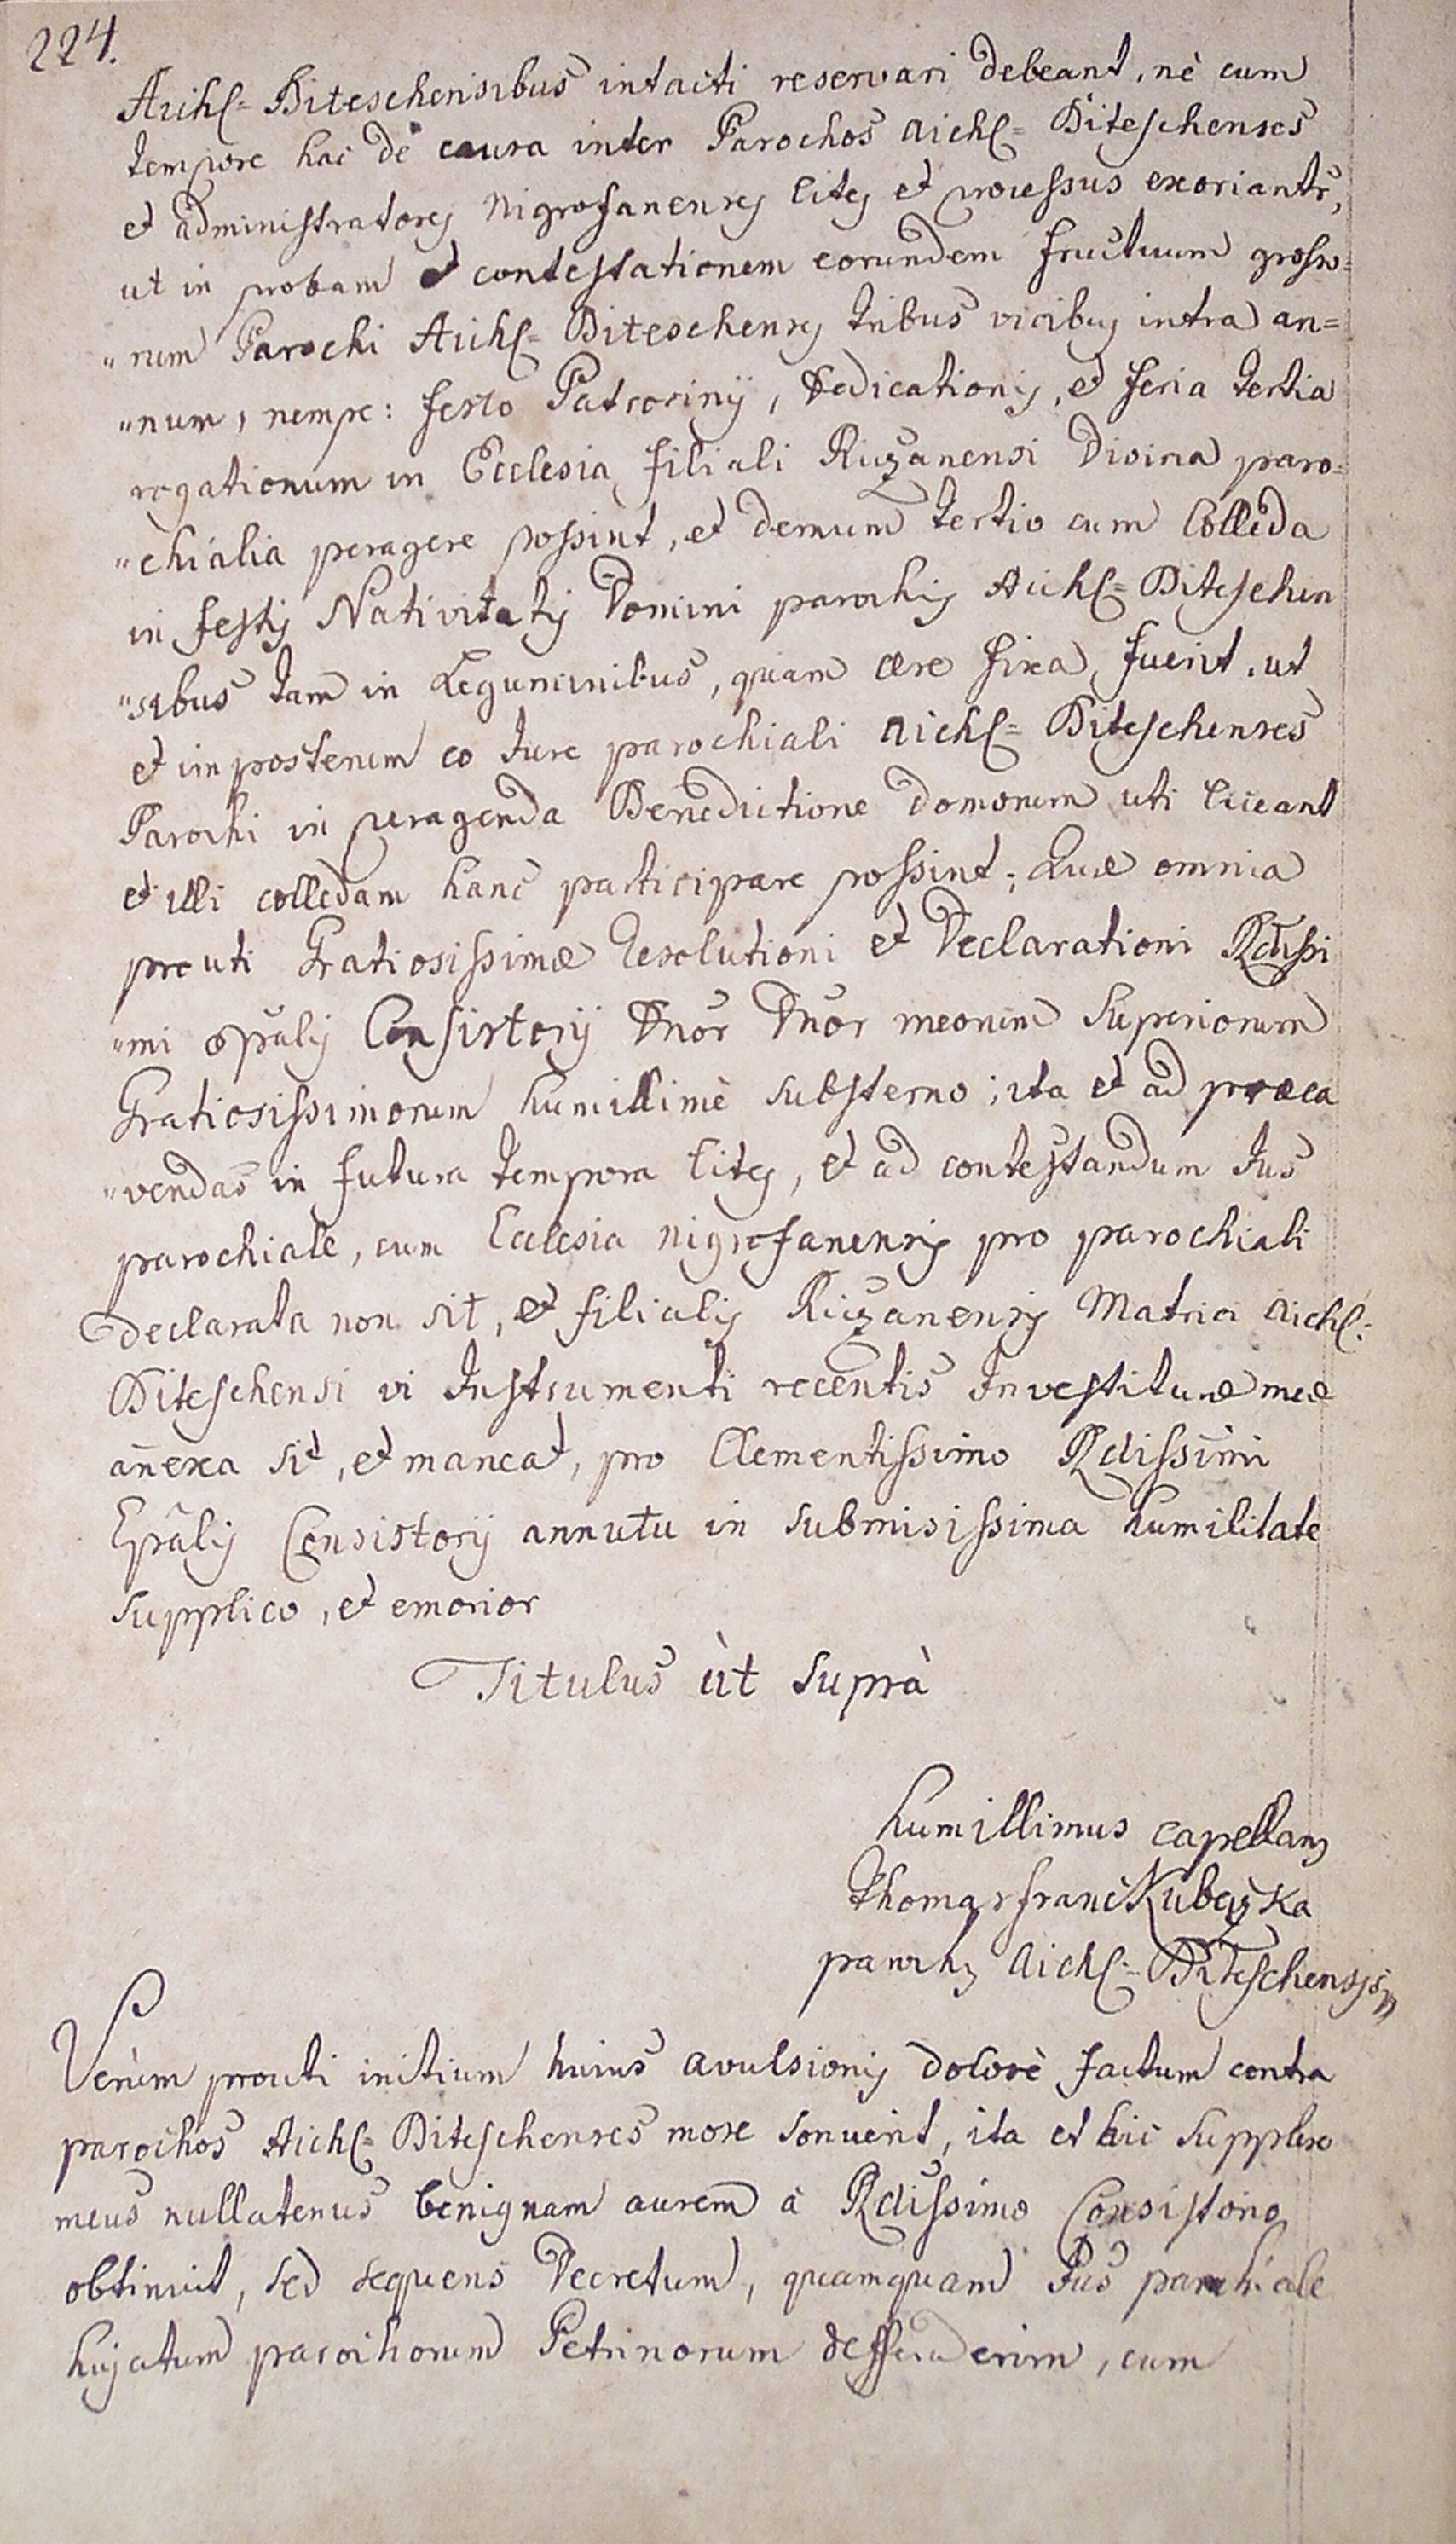 224.
Aichl= Biteschensibus intacti reservari debeant, nè cum
tempore hac de causa inter Parochos Aichl= Biteschenses
et administratores Nigrofanenses lites et processus exoriantr,
ut in probam et contestationem eorundem fructuum grosso=
"rum Parochi Aichl= Biteschenses tribus vicibus intra an=
"num, nempe: festo Patrocinij, Dedicationis, et feria tertia
rogationum in Ecclesia filiali Riczanensi Divina paro=
"chialia peragere possint, et demum tertio cum Colleda
in festis Nativitatis Domini parochis Aichl= Biteschen
"sibus tam in Leguminibus, quam ære fixa fuerit, ut
et imposterum eo Jure parochiali Aichl= Biteschenses
Parochi in peragenda Benedictione domorum uti liceant
et illi colledam hanc participare possint; Quæ omnia
prouti Gratiosissimæ Resolutioni et Declarationi Rdissi
"mi Epālis Consistorij Dnōr Dnōr meorum Superiorum
Gratiosissimorum humillimè substerno; ita et ad præca
"vendas in futura tempora lites, et ad contestandum Jus
parochiale, cum Ecclesia nigrofanensis pro parochiali
declarata non sit, et filialis Riczanensis Matrici Aichl:
Biteschensi vi Instrumenti recentis Investituræ meæ
añexa sit, et maneat, pro Clementissimo Rdissimi
Epālis Consistorij annutu in submisissima humilitate
supplico, et emorior
Titulus ùt suprà
humillimus capellang
Thomas franc Kubiczka
parochg Aichl= Biteschensis
Verùm prouti initium huius avulsionis dolorè factum contra
parochos Aichl= Biteschenses more sonuerit, ita et hic supplex
meus nullatenus benignam aurem à Rdissimo Consistorio
obtinuit, sed sequens Decretum, quamquam Jus parochiale
hujatum parochorum Petrinorum deffenderim, cum